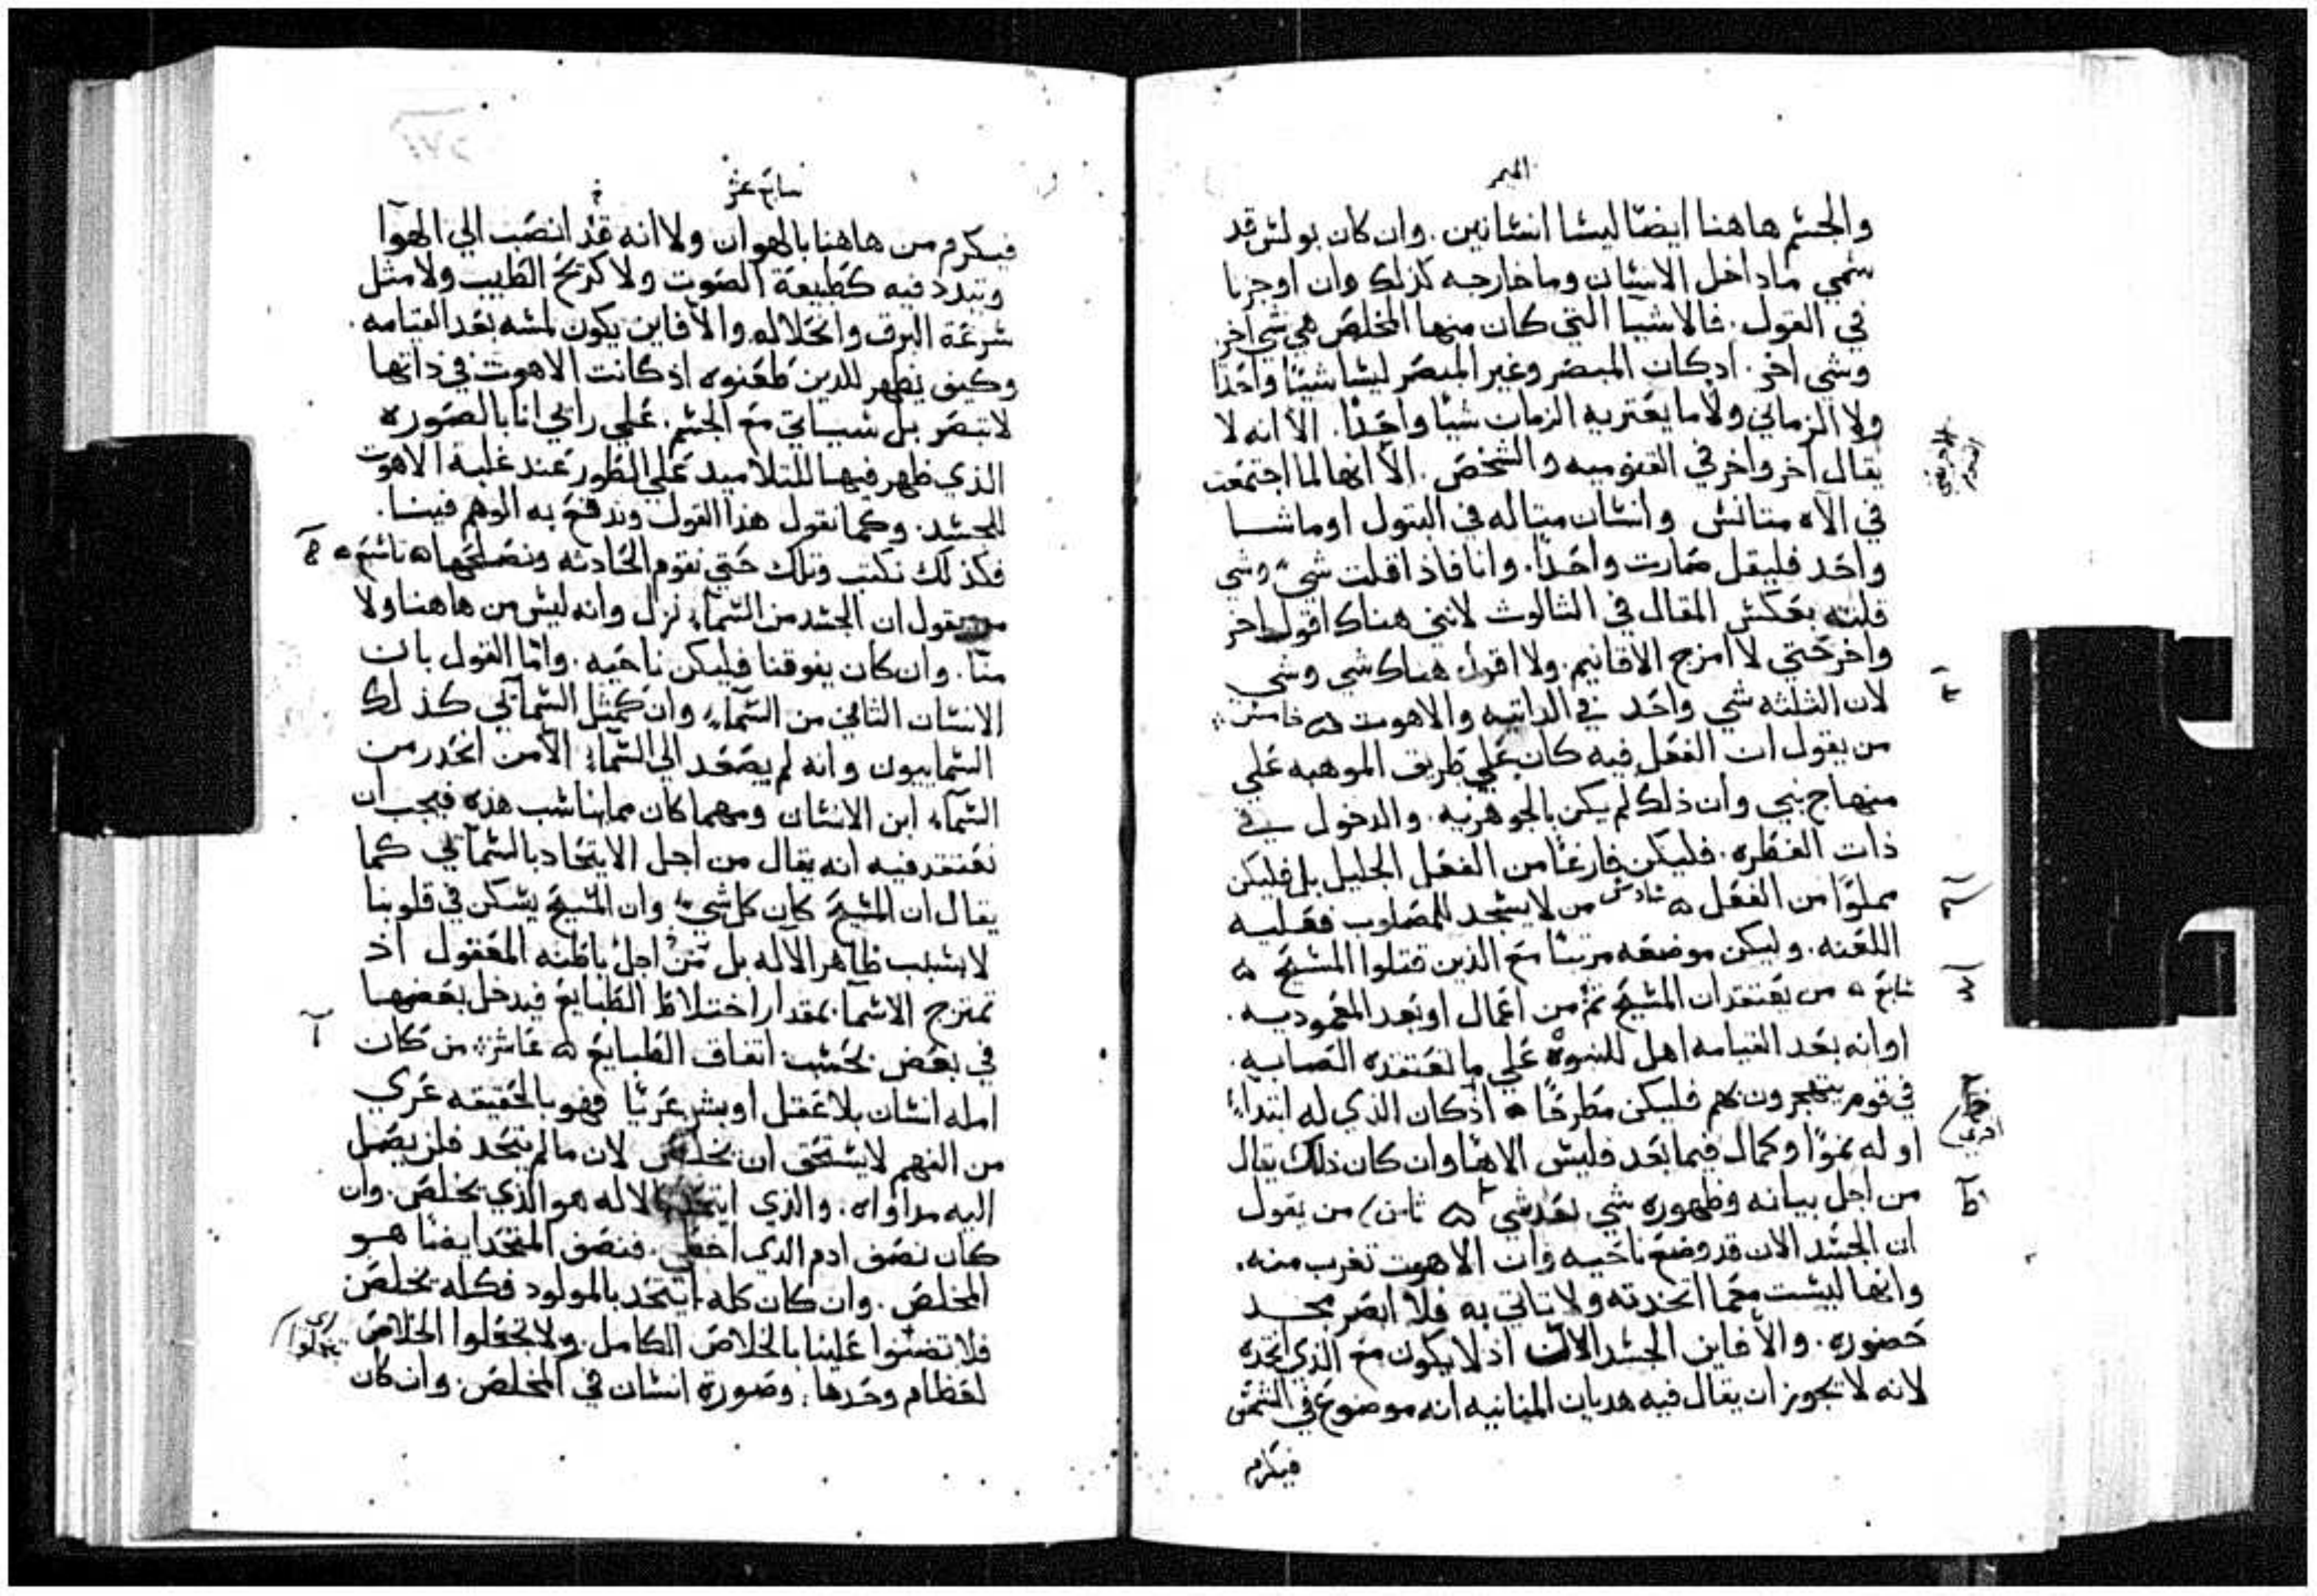 الميمر
والجسم هاهنا ايضًا ليسا انسانين. وان كان بولس قد
سمي ماداخل الانسان وماخارجه كذلك وان اوجزنا
في القول. فالاشيا التي كان منها المخلص هي شي اخر
وشي اخر. اذ كان المبصر وغير المبصر ليسا شيًا واحدًا
ولا الزماني ولا ما يعتريه الزمان شيًا واحدًا. الا انه لا
يقال اخر واخر في القنوميه والشخص. الا انها لما اجتمعت
في الاه متانس وانسان متاله في البتول اوماشا
واحد فليقل صارت واحدًا. وانا فاذا قلت شي وشي
قلته بعكس المقال في الثالوث لانني هناك اقول اخر
واخر حتي لا امزج الاقانيم. ولا اقول هناك شي وشي
لان الثلثه شي واحد في الذاتيه والاهوت ۵ خامس
من يقول ان الفعل فيه كان علي طريق الموهبه علي
منهاج نبي وان ذلك لم يكن بالجوهريه. والدخول في
ذات الفطره. فليكن فارغًا من الفعل الجليل بل فليكن
مملوًا من الفعل ۵ سادس من لا يسجد للمصلوب فعليه
اللعنه. وليكن موضعه مرتبًا مع الذين قتلوا المسيح ۵
سابع ۵ من يعتقد ان المسيح تم من اعمال او بعد المعموديه.
او انه بعد القيامه اهل للبنوة علي ما تعتقده الصابيه.
في قوم يتهجرون بهم فليكن مطرحًا ۵ اذ كان الذي له ابتداء
او له نموًا وكمال فيما بعد فليس الاهًا وان كان ذلك يقال
من اجل بيانه وظهوره شي بعد شي ۵ ثامن من يقول
ان الجسد الان قد وضع ناحيه وان الاهوت تغرب منه.
وانها ليست معما اتخذته ولا تاتي به فلا ابصر مجد
حضوره. والا فاين الجسد الان اذ لا يكون مع الذي اتخذه
لانه لا يجوز ان يقال فيه هديان المنانيه انه موضوع في الشمس
فيكرم
سابع عشر
فيكرم من هاهنا بالهوان ولا انه قد انصب الي الهوآ
وتبدد فيه كطبيعة الصوت ولا كريح الطيب ولا مثل
سرعة البرق وانحلاله والا فاين يكون لمسه بعد القيامه.
وكيف يظهر للدين طعنوه اذ كانت الاهوت في ذاتها
لا تبصر بل سياتي مع الجسم. علي رايي انا بالصوره
الذي ظهر فيها للتلاميد علي الطور عند غلبة الاهوت
للجسد. وكما نقول هذا القول وندفع به الوهم فينا.
فكذلك نكتب وتلك حتي نقوم الحادثه ونصلحها ۵ تاسع ۵
من يقول ان الجسد من السماء نزل وانه ليس من هاهنا ولا
منا. وان كان يفوقنا فليكن ناحيه. واما القول بان
الانسان الثاني من السماء وان كمثل السمآئي كذلك
السماييون وانه لم يصعد الي السماء الا من انحدر من
السمآء ابن الانسان ومهما كان مما يناسب هذه فيجب ان
نعتقد فيه انه يقال من اجل الايتحاد بالسمآئي كما
يقال ان المسيح كان كل شي وان المسيح يسكن في قلوبنا
لا بسبب ظاهر الاله بل من اجل باطنه المعقول اذ
تمتزج الاسما بمقدار اختلاط الطبايع فيدخل بعضها
في بعض بحسب اتفاق الطبايع ۵ عاشر من كان
امله انسان بلا عقل او بشر عريًا فهو بالحقيقه عري
من الفهم لا يستحق ان يخلص لان ما لم يتحد فلن يصل
اليه مداواه. والذي ايتحد بالاله هو الذي يخلص. وان
كان نصف ادم الذي اخطي. فنصف المتحد ايضًا هو
المخلص. وان كان كله ايتحد بالمولود فكله يخلص
فلا تضنوا علينا بالخلاص الكامل. ولا تجعلوا الخلاص
لعظام وحدها. وصورة انسان في المخلص. وان كان